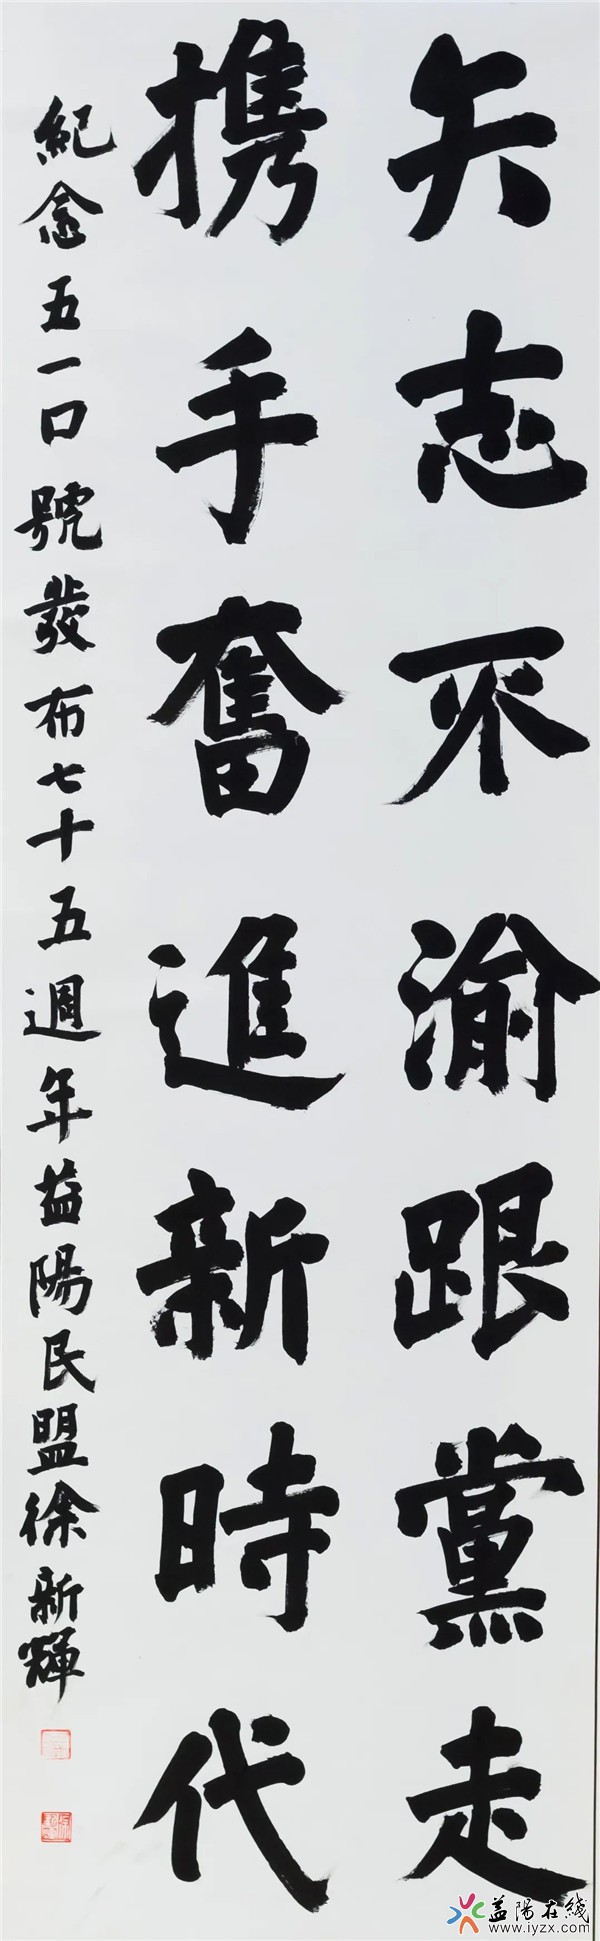 矢志不渝跟黨走
携手奮進新時代
紀念五一口號發布七十五週年益陽民盟徐新輝
益陽在线
www.iyzx.cn